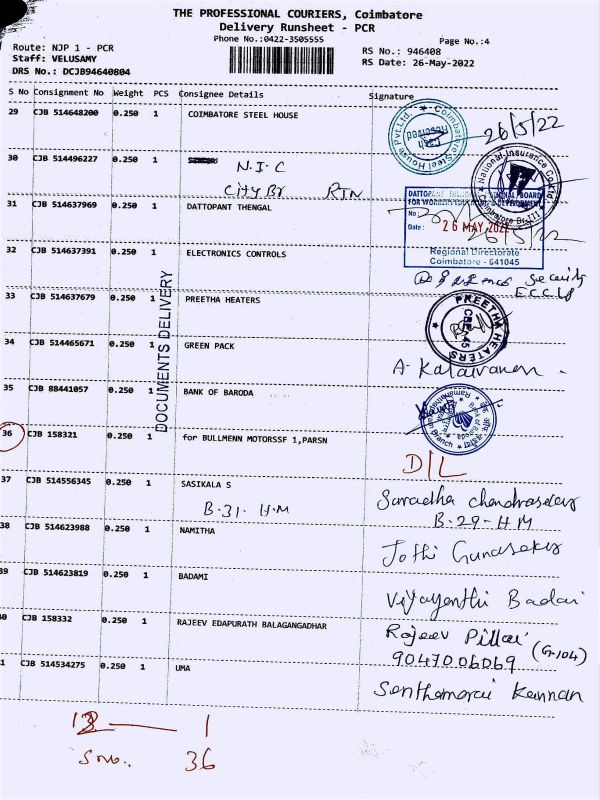 THE PROFESSIONAL COURIERS, Coimbatore
Delivery Runsheet - PCR
Phone No.:0422-3505555
Page No.:4
Route: NJP 1 - PCR
Staff: VELUSAMY
DRS No.: DCJB94640804
RS No.: 946408
RS Date: 26-May-2022
S No Consignment No Weight PCS Consignee Details Signature
29 CJB 514648200 0.250 1 COIMBATORE STEEL HOUSE
Coimbatore Steel House Pvt.Ltd.
26/5/22
30 CJB 514496227 0.250 1
N.I.C
City Br RTN
National Insurance Co. Ltd.
31 CJB 514637969 0.250 1 DATTOPANT THENGAL
DATTOPANT
FOR
No :
Date : 26 MAY 2022
Regional Directorate
Coimbatore - 641045
26/5/22
32 CJB 514637391 0.250 1 ELECTRONICS CONTROLS
Security
33 CJB 514637679 0.250 1 PREETHA HEATERS
PREETHA HEATERS
CBE-45
DOCUMENTS DELIVERY
34 CJB 514465671 0.250 1 GREEN PACK
A. Kalaivanan
35 CJB 88441057 0.250 1 BANK OF BARODA
Bank of Baroda
Branch
36 CJB 158321 0.250 1 for BULLMENN MOTORSSF 1,PARSN
D/L
37 CJB 514556345 0.250 1 SASIKALA S
B-31- H.M
Saradha Chandrasekar
B-29-HM
38 CJB 514623988 0.250 1 NAMITHA
Jothi Gunasekar
39 CJB 514623819 0.250 1 BADAMI
Vijayenthi Badai
40 CJB 158332 0.250 1 RAJEEV EDAPURATH BALAGANGADHAR
Rajeev Pillai (G-104)
9047006069
41 CJB 514534275 0.250 1 UMA
Senthamarai Kannan
1
S no.. 36